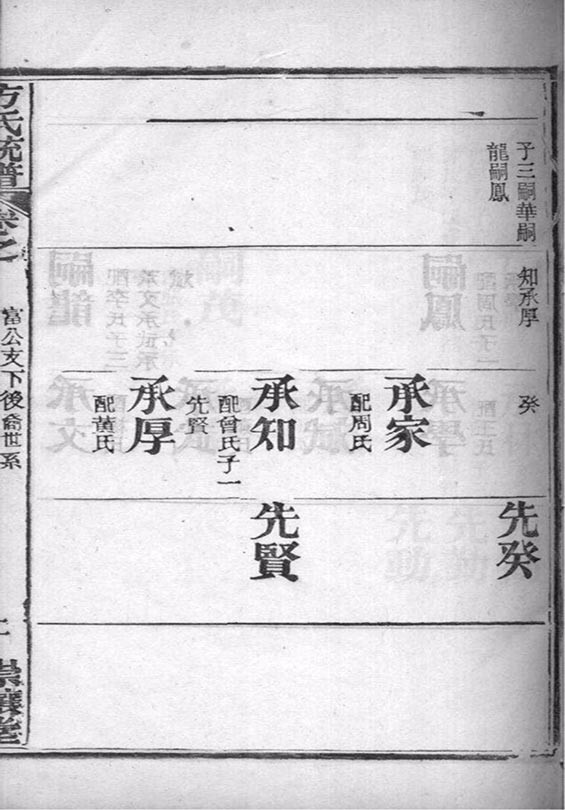 子三嗣華嗣
龍嗣鳳
知承厚
癸
承家
配周氏
承知
配曾氏子一
先賢
承厚
配黃氏
先癸
先賢
方氏統譜
卷之
富公支下後裔世系